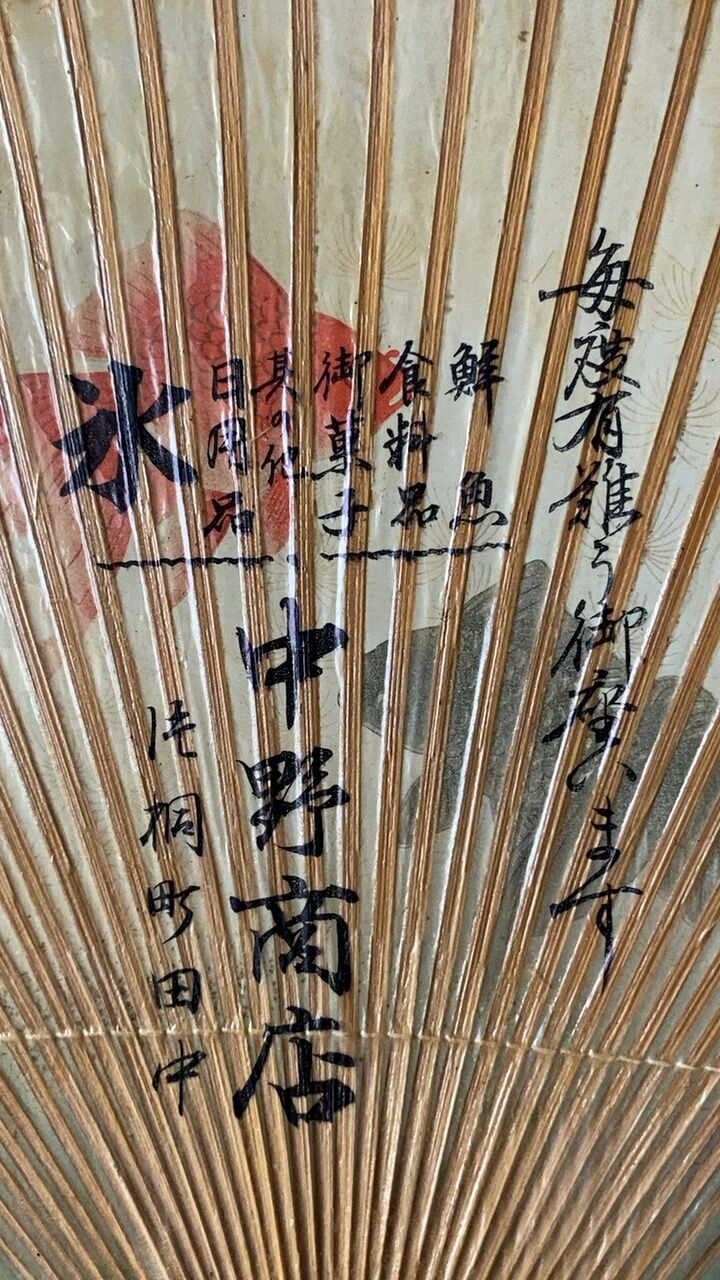 毎度有難う御座います
鮮魚
食料品
御菓子
其の他
日用品
氷
中野商店
片桐町田中